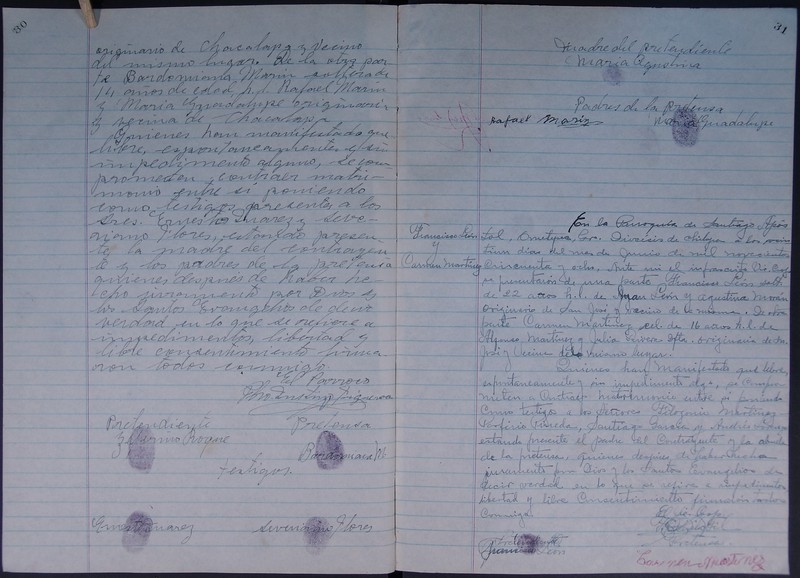 30
originario de Chacalapa y Vecino
del mismo lugar. De la otra par
te Bardomiana Marin soltera de
14 años de edad, h.l. Rafael Marin
y María Guadalupe originaria
y vecina de Chacalapa
Quienes han manifestado que
libre, espontáneamente y sin
impedimento alguno, se com
prometen contraer matri-
monio entre si poniendo
como testigos presentes a los
Sres. Ernesto Juarez y Seve-
riano Flores, estando presen-
te la madre del contrayen
te y los padres de la pretensa
quienes después de haber he-
cho juramento por Dios y
los Santos Evangelios de decir
verdad en lo que se refiere a
impedimentos, libertad y
libre consentimiento firma
ron todos conmigo.
El Parroco
Pretendiente Pretensa
Bardomiana M
testigos.
Ernesto Juarez Severiano Flores
31
Madre del pretendiente
María Agustina
Padres de la pretensa
Rafael Marin María Guadalupe
Francisco León
y
Carmen Martínez
En la Parroquia de Santiago Após
tol, Ometepec, Gro. Diócesis de Chilapa a los
un días del mes de Junio de mil novecientos
cincuenta y ocho. Ante mi el infrascrito
se presentaron de una parte Francisco León solt.
de 22 años h.l. de Juan León y Agustina
originario de San José y vecino de la misma. De otra
parte Carmen Martínez sol. de 16 años h.l. de
Alfonso Martínez y Julia originaria de San
José y Vecina del mismo lugar.
Quienes han Manifestado que libre,
espontáneamente y sin impedimento alg., se compro
meten a Contraer matrimonio entre si poniendo
Como testigos a los Señores Filogonio Martínez
Porfirio Pineda, Santiago García y Andrés
estando presente el padre del Contrayente y la abuela
de la pretensa, quienes después de haber hecho
juramento por Dios y los Santos Evangelios de
decir verdad en lo que se refiere a impedimentos
libertad y libre Consentimiento firmaron todos
Conmigo.
Pretendiente Pretensa
Francisco León
Carmen Martinez